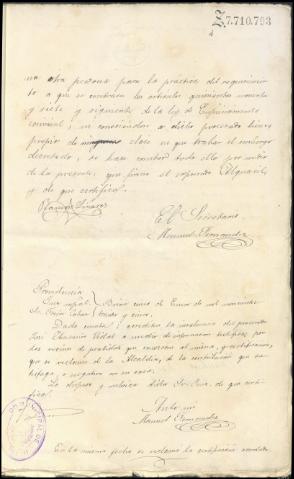 7.710.793
una otra persona para la practica del requerimien
to a que se contraen los articulos quinientos noventa
y siete y siguientes de la ley de Enjuiciamiento
criminal, no conociendose a dicho procesado bienes
propios de ninguna clase en que trabar el embargo
decretado, se hace constar todo ello por medio
de la presente, que firma el referido Alguacil
y de que certifico.
El Secretario
Manuel Fernandez
Providencia
Juez
Enero de mil novecientos
treinta y cinco.
Dada cuenta; acredítese la insolvencia del procesado
José Vidal a medio de informacion testifical, por
dos vecinos de probidad que conozcan al mismo, y certificacion,
que se reclame de la Alcaldia, de la contribucion que sa
tisfaga, o negativa en su caso.
Lo dispuso y rubrica dicho Sr. Juez, de que cer
tifico.
Ante mi
Manuel Fernandez
En la misma fecha se reclamo la certificacion acordada